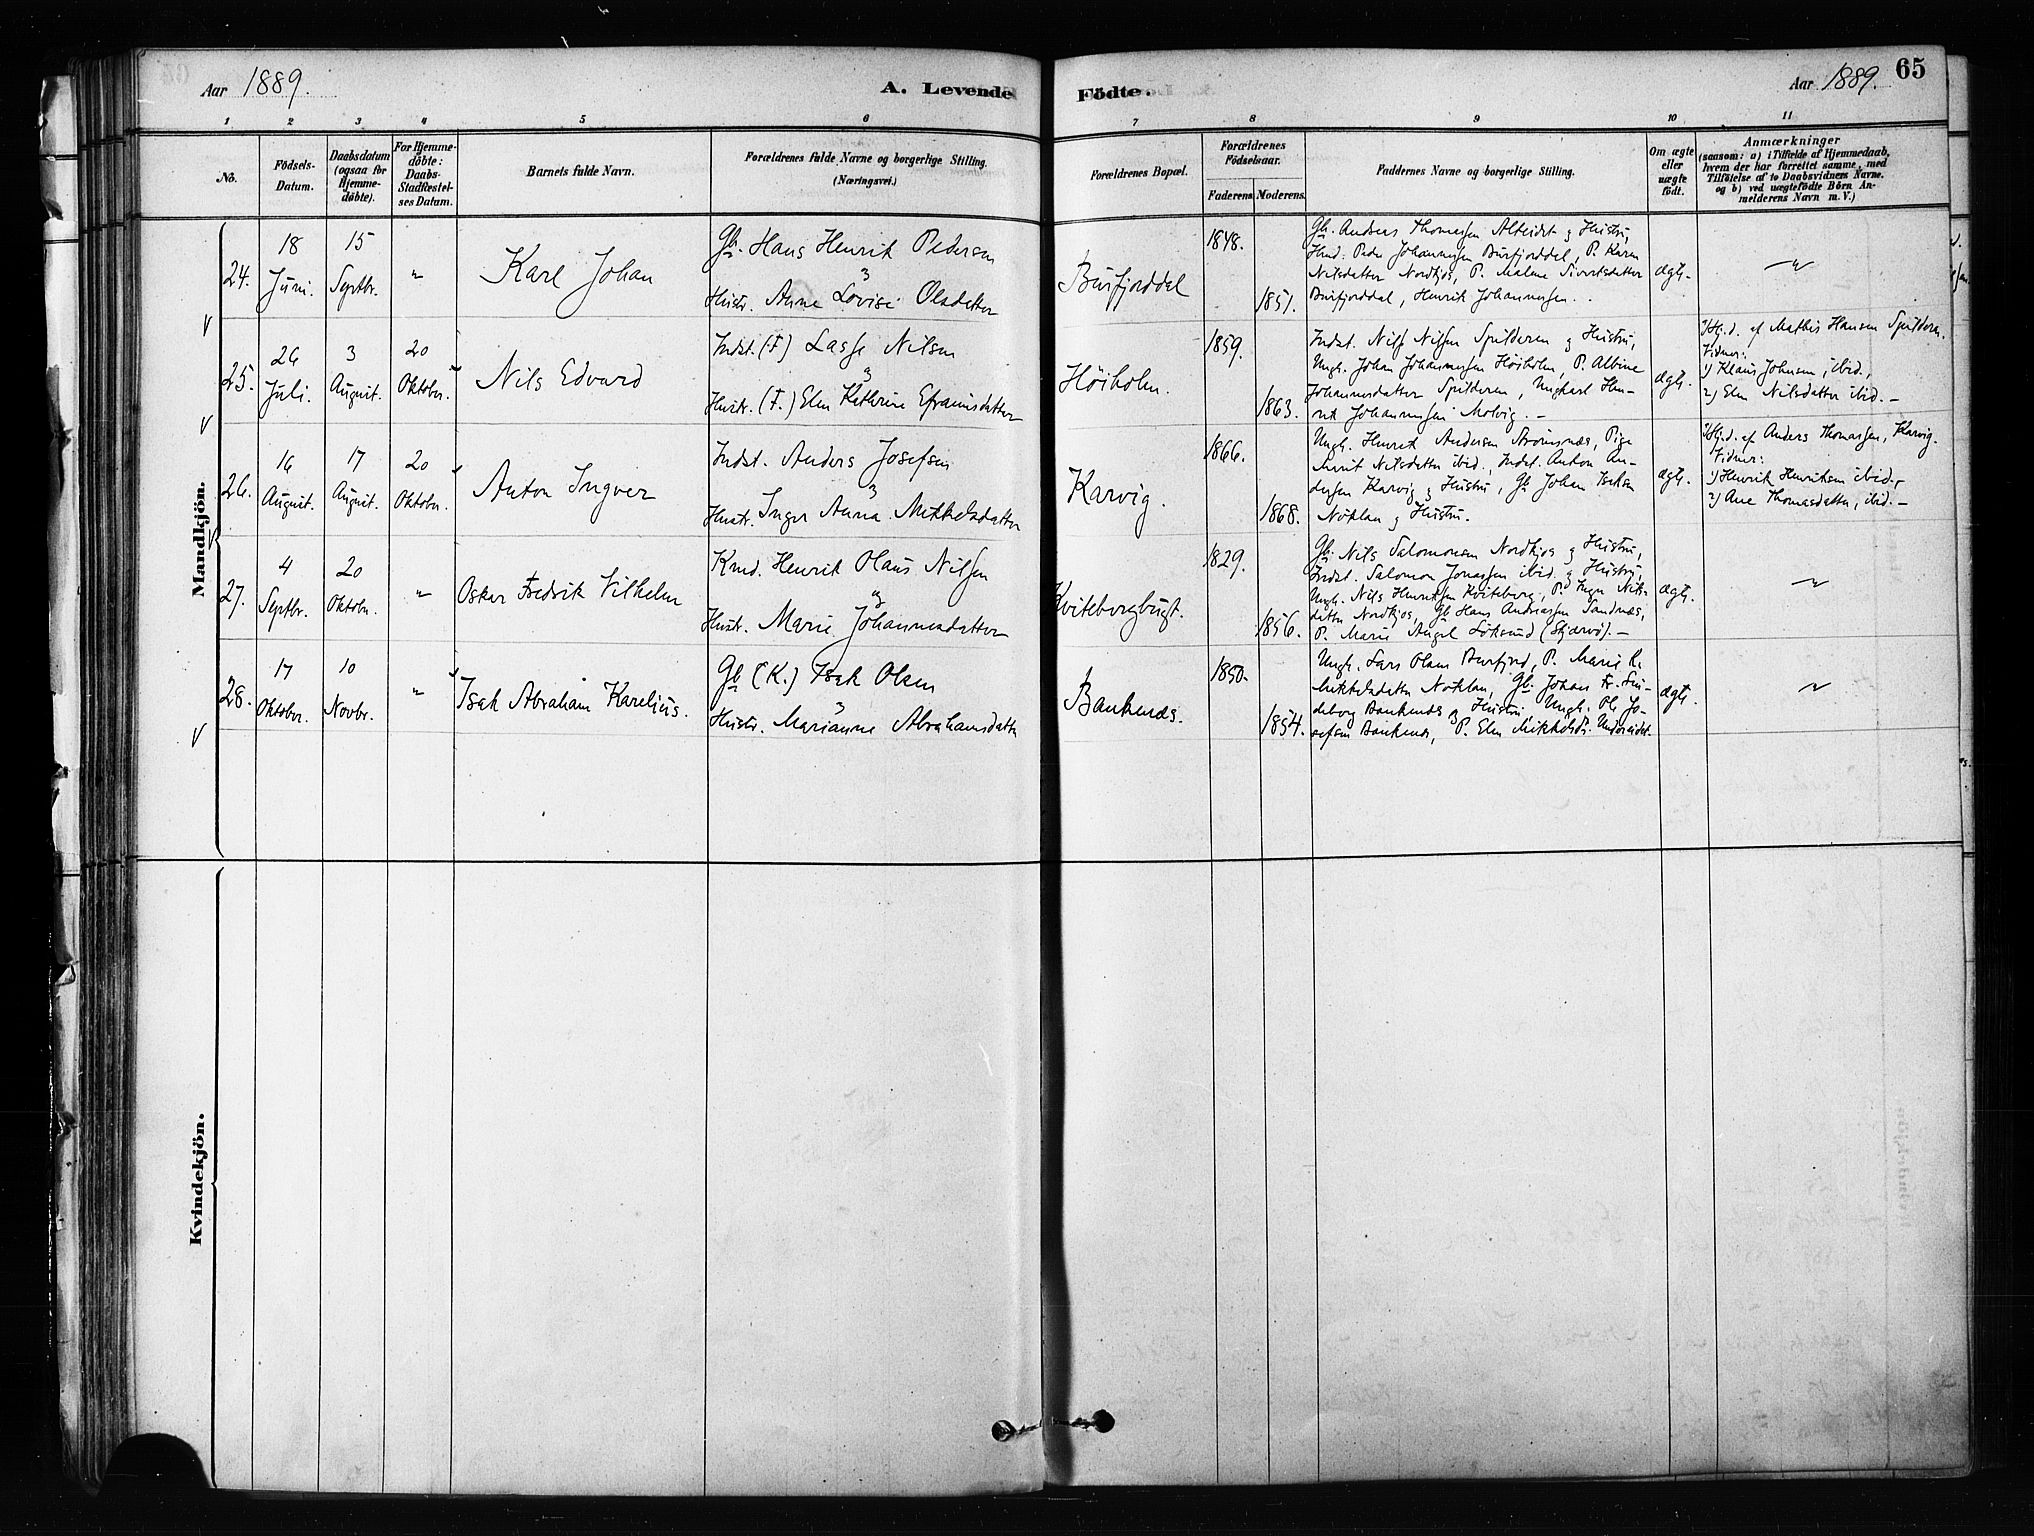 Aar 1889.
A. Levende Födte.
Aar 1889.
65
1 2 3 4 5 6 7 8 9 10 11
No.
Födsels-
Datum.
Daabsdatum
(ogsaa for
Hjemme-
döbte).
For Hjemme-
döbte:
Daabs-
Stadfæstel-
ses Datum.
Barnets fulde Navn.
Forældrenes fulde Navne og borgerlige Stilling.
(Næringsvei.)
Forældrenes Bopæl.
Forældrenes
Födselsaar.
Faderens Moderens.
Faddernes Navne og borgerlige Stilling.
Om ægte
eller
uægte
født.
Anmærkninger
(saasom: a) i Tilfælde af Hjemmedaab,
hvem der har forrettet samme, med
Tilföielse af to Daabsvidners Navne.
og b) ved uægtefödte Börn An-
melderens Navn m. V.)
Mandkjön.
24.
18
Juni.
15
Septbr.
"
Karl Johan
Gb. Hans Henrik Pedersen
og
Hustr. Anne Lovise Olsdatter
Burfjorddal
1848.
1851.
Gb. Andreas Thomassen Alteidet og Hustru,
Kmd. Peder Johannessen Burfjorddal, P. Karen
Nilsdatter Nordkjos, P. Malene Sivertsdatter
Burfjorddal, Henrik Johannessen.
ægte.
"
25.
26
Juli.
3
August.
20
Oktober.
Nils Edvard
Indst. (F) Lasse Nilsen
og
Hustr. (F.) Elen Kathrine Efraimsdatter
Höiholm.
1859.
1863.
Indst. Nils Nilsen Spilderen og Hustru,
Ungk. Johan Johannessen Höiholm, P. Albine
Johannesdatter Spilderen, Ungkarl Hen-
rik Johannessen Molvig. -
ægte.
Hj.d. af Mathis Hansen Spilderen.
Vidner:
1) Klaus Johnsen, ibid.,
2) Elen Nilsdatter ibid. -
26.
16
August.
17
August.
20
Oktober.
Anton Ingver
Indst. Anders Josefsen
og
Hustr. Inger Anna Mikkelsdatter
Karvig.
1866.
1868.
Ungk. Henrik Andersen Strömsnæs, Pige
Marit Nilsdatter ibid., Indst. Anton An-
dersen Karvig og Hustru, Gb. Johan Isaksen
Noklan og Hustru.
ægte.
Hj.d. af Anders Thomassen, Karvig.
Vidner:
1) Henrik Henriksen ibid.,
2) Ane Thomasdatter, ibid. -
27.
4
Septbr.
20
Oktobr.
"
Oskar Fredrik Vilhelm
Kmd. Henrik Olaus Nilsen
og
Hustr. Marie Johannesdatter
Kviteborgbugt.
1829.
1856.
Gb. Nils Salomonsen Nordkjos og Hustru,
Indst. Salomon Jonassen ibid. og Hustru,
Ungk. Nils Henriksen Kviteborg, P. Inger Nils-
datter Nordkjos, Gb. Hans Andreassen Sandnæs,
P. Marie Angel Löksund (Skjærvö). -
ægte.
"
28.
17
Oktober.
10
Novbr.
"
Isak Abraham Karelius.
Gb. (K.) Isak Olsen
og
Hustr. Marianne Abrahamsdatter
Bankenæs.
1850.
1854.
Ungk. Lars Olsen Burfjord, P. Marie K.
Mikkelsdatter Noklan, Gb. Johan Fr. Sm-
deborg Bankenæs og Hustru, Ungk. Ole Jo-
sefsen Bankenæs, P. Elen Mikkelsdr. Undereidet.
ægte.
"
Kvindekjön.